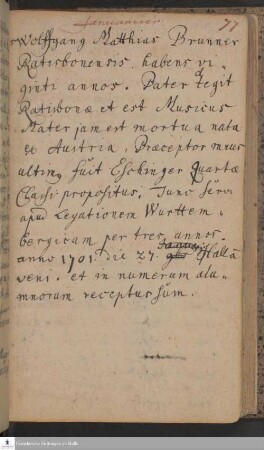 Januarius
77
Wolffgang Matthias Brunner
Ratisbonensis habens vi
ginti annos. Pater degit
Ratisbonæ et est Musicus
Mater jam est mortua nata
ex Austria, Præceptor meus
ultimus fuit Eschinger Quartæ
Classi propositus. Tunc servi
apud Legationem Wurttem-
bergicam per tres annos
anno 1701. die 27. Januar Hallā
veni. et in numerum alu-
mnorum receptus sum.